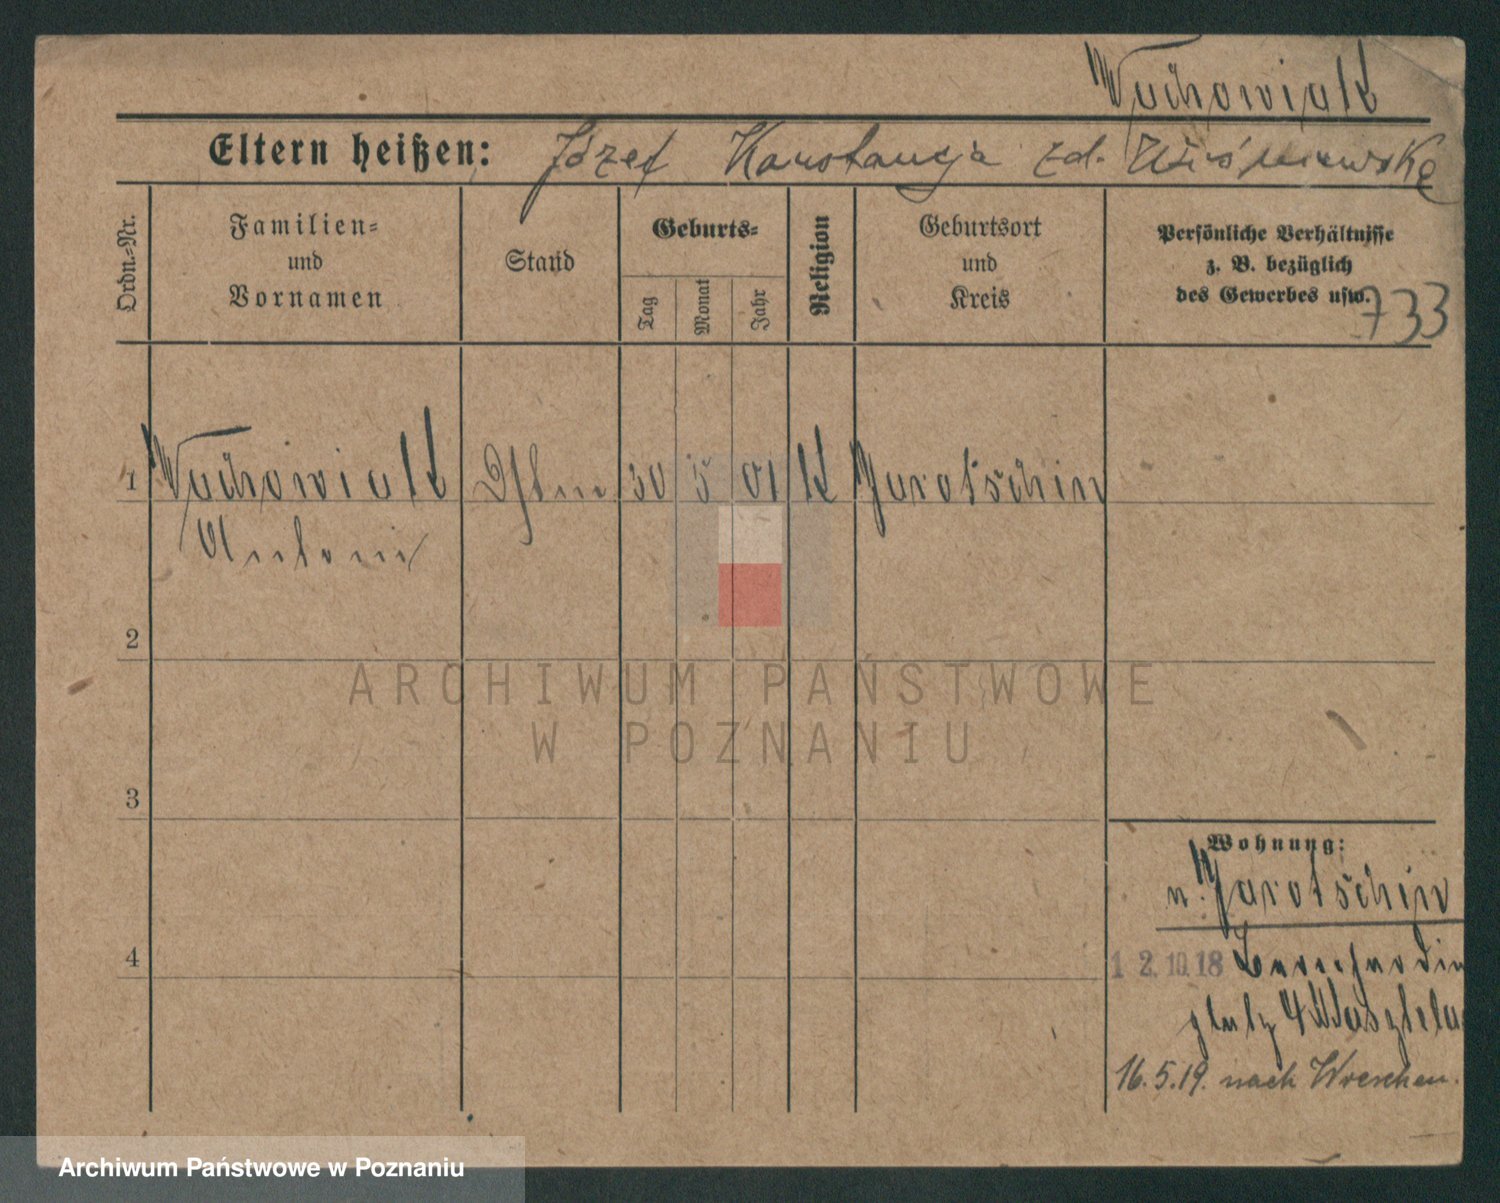 Wachowiak
Eltern heißen: Józef Konstancja zd. Wiśniewska
Ordn.-Nr.
Familien-
und
Vornamen
Stand
Geburts-
Tag
Monat
Jahr
Religion
Geburtsort
und
Kreis
Persönliche Verhältnisse
z. B. bezüglich
des Gewerbes usw.
733
1 Wachowiak 30 5 01 K Jarotschin
Antoni
2
ARCHIWUM PAŃSTWOWE
W POZNANIU
3
Wohnung:
n. Jarotschin
4
12.10.18
4
16.5.19. nach Wreschen.
Archiwum Państwowe w Poznaniu